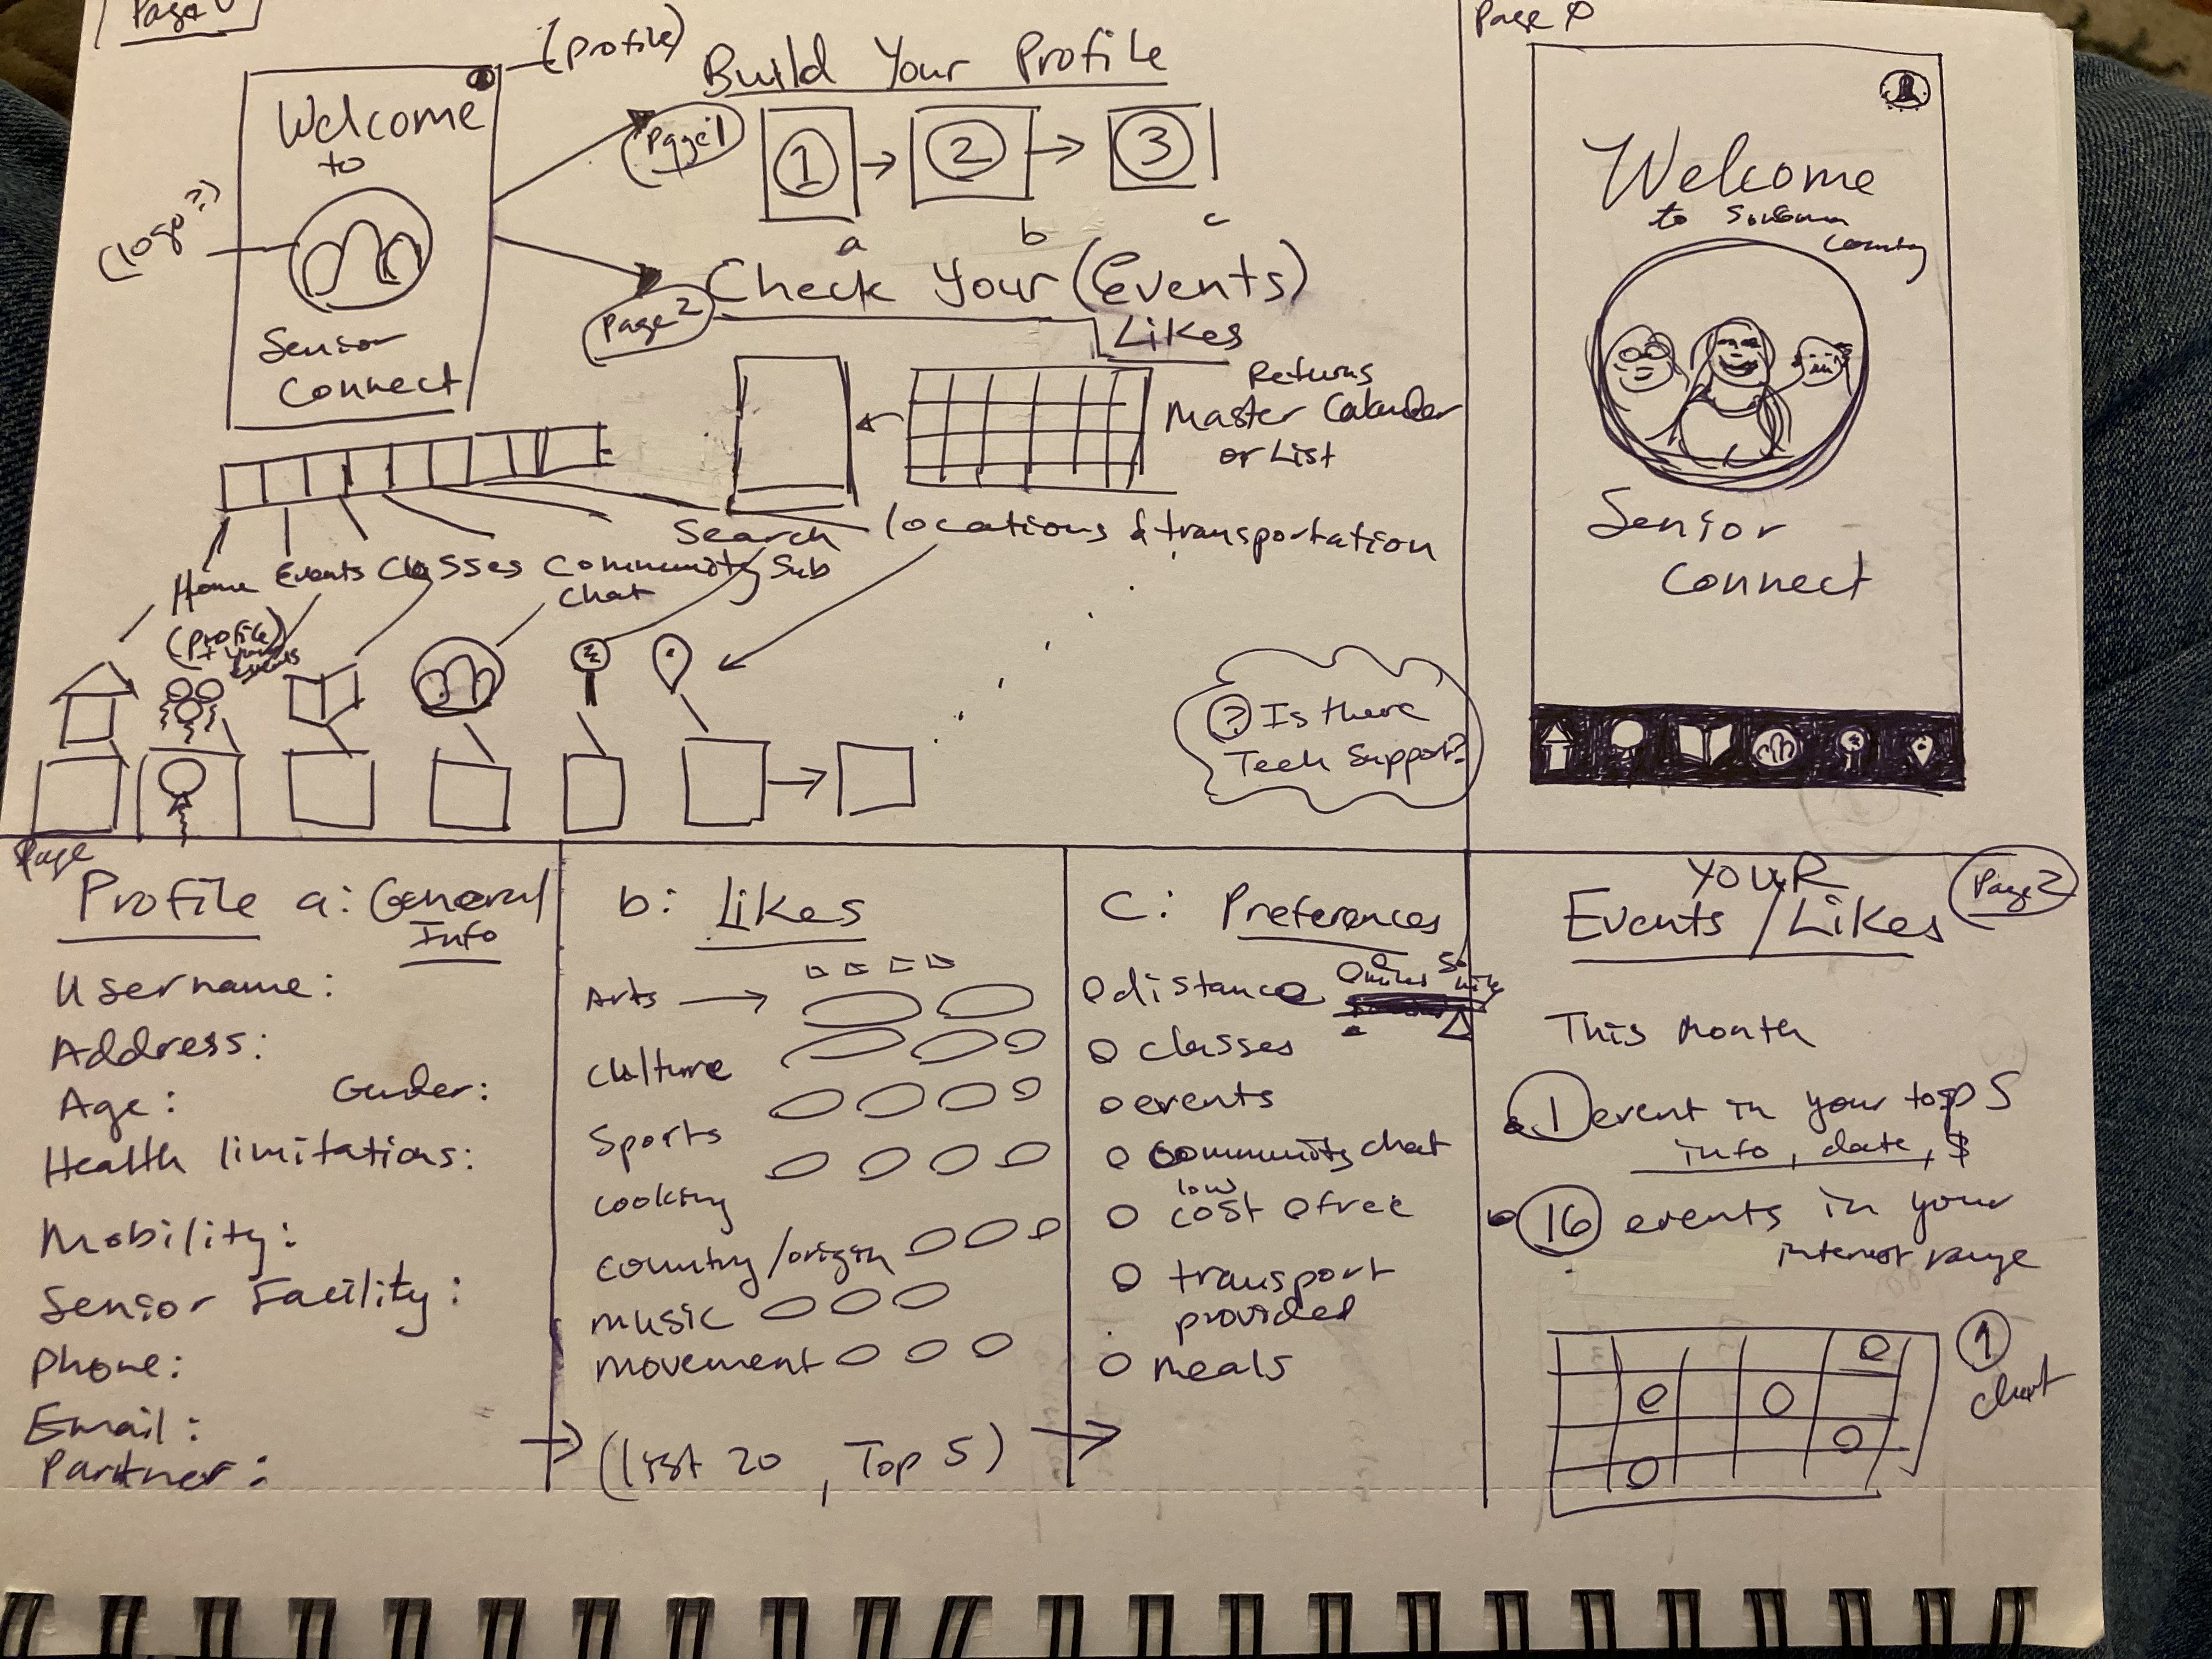 Page 0
(profile)
Welcome
to
(logo?)
Senior
Connect
Build Your Profile
Page 1
1
2
3
a
b
c
Page 2
Check Your (Events)
Likes
Returns
Master Calender
or List
Search
locations & transportation
Home
Events
Classes
Community
Chat
Sub
(profile)
+ your
events
? Is there
Tech Support?
Page 0
Welcome
to Sonoma
County
Senior
Connect
Page
Profile a: General
Info
Username:
Address:
Age: Gender:
Health limitations:
Mobility:
Senior Facility:
Phone:
Email:
Partner:
b: Likes
Arts
Culture
Sports
cooking
country/origin
music
movement
(list 20, Top 5)
C: Preferences
distance 0 miles 50
classes
events
community chat
low
cost free
transport
provided
meals
YOUR
Events / Likes
Page 2
This Month
a. 1 event in your top 5
info, date, $
b. 16 events in your
interest range